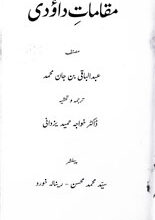 مقاماتِ داؤدی
مصنف
عبدالباقی بن جان محمد
ترجمہ و تحشیہ
ڈاکٹر خواجہ حمید یزدانی
پبلشر
سیّد محمد محسن - رینالہ خورد